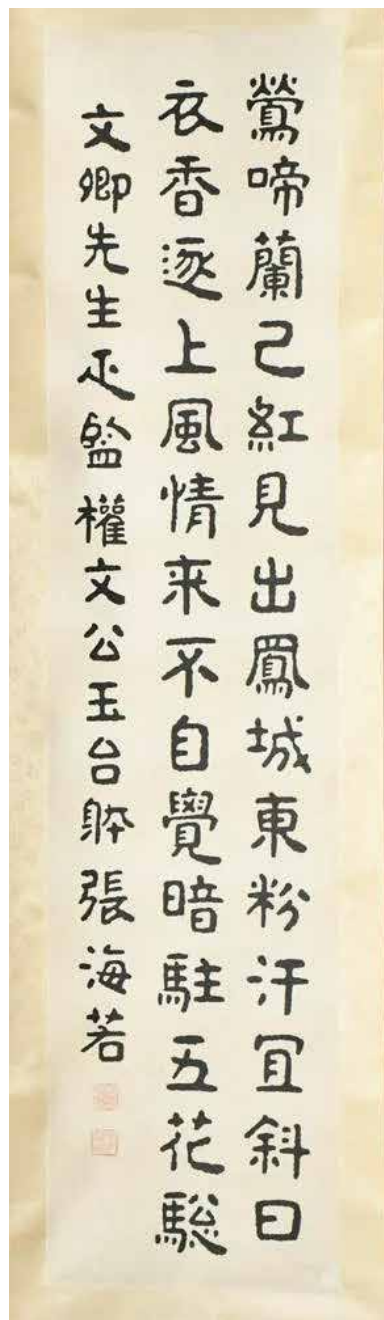 鶯啼蘭已紅見出鳳城東粉汗冝斜日
衣香逐上風情来不自覺暗駐五花驄
文卿先生疋監權文公玉台躰張海若